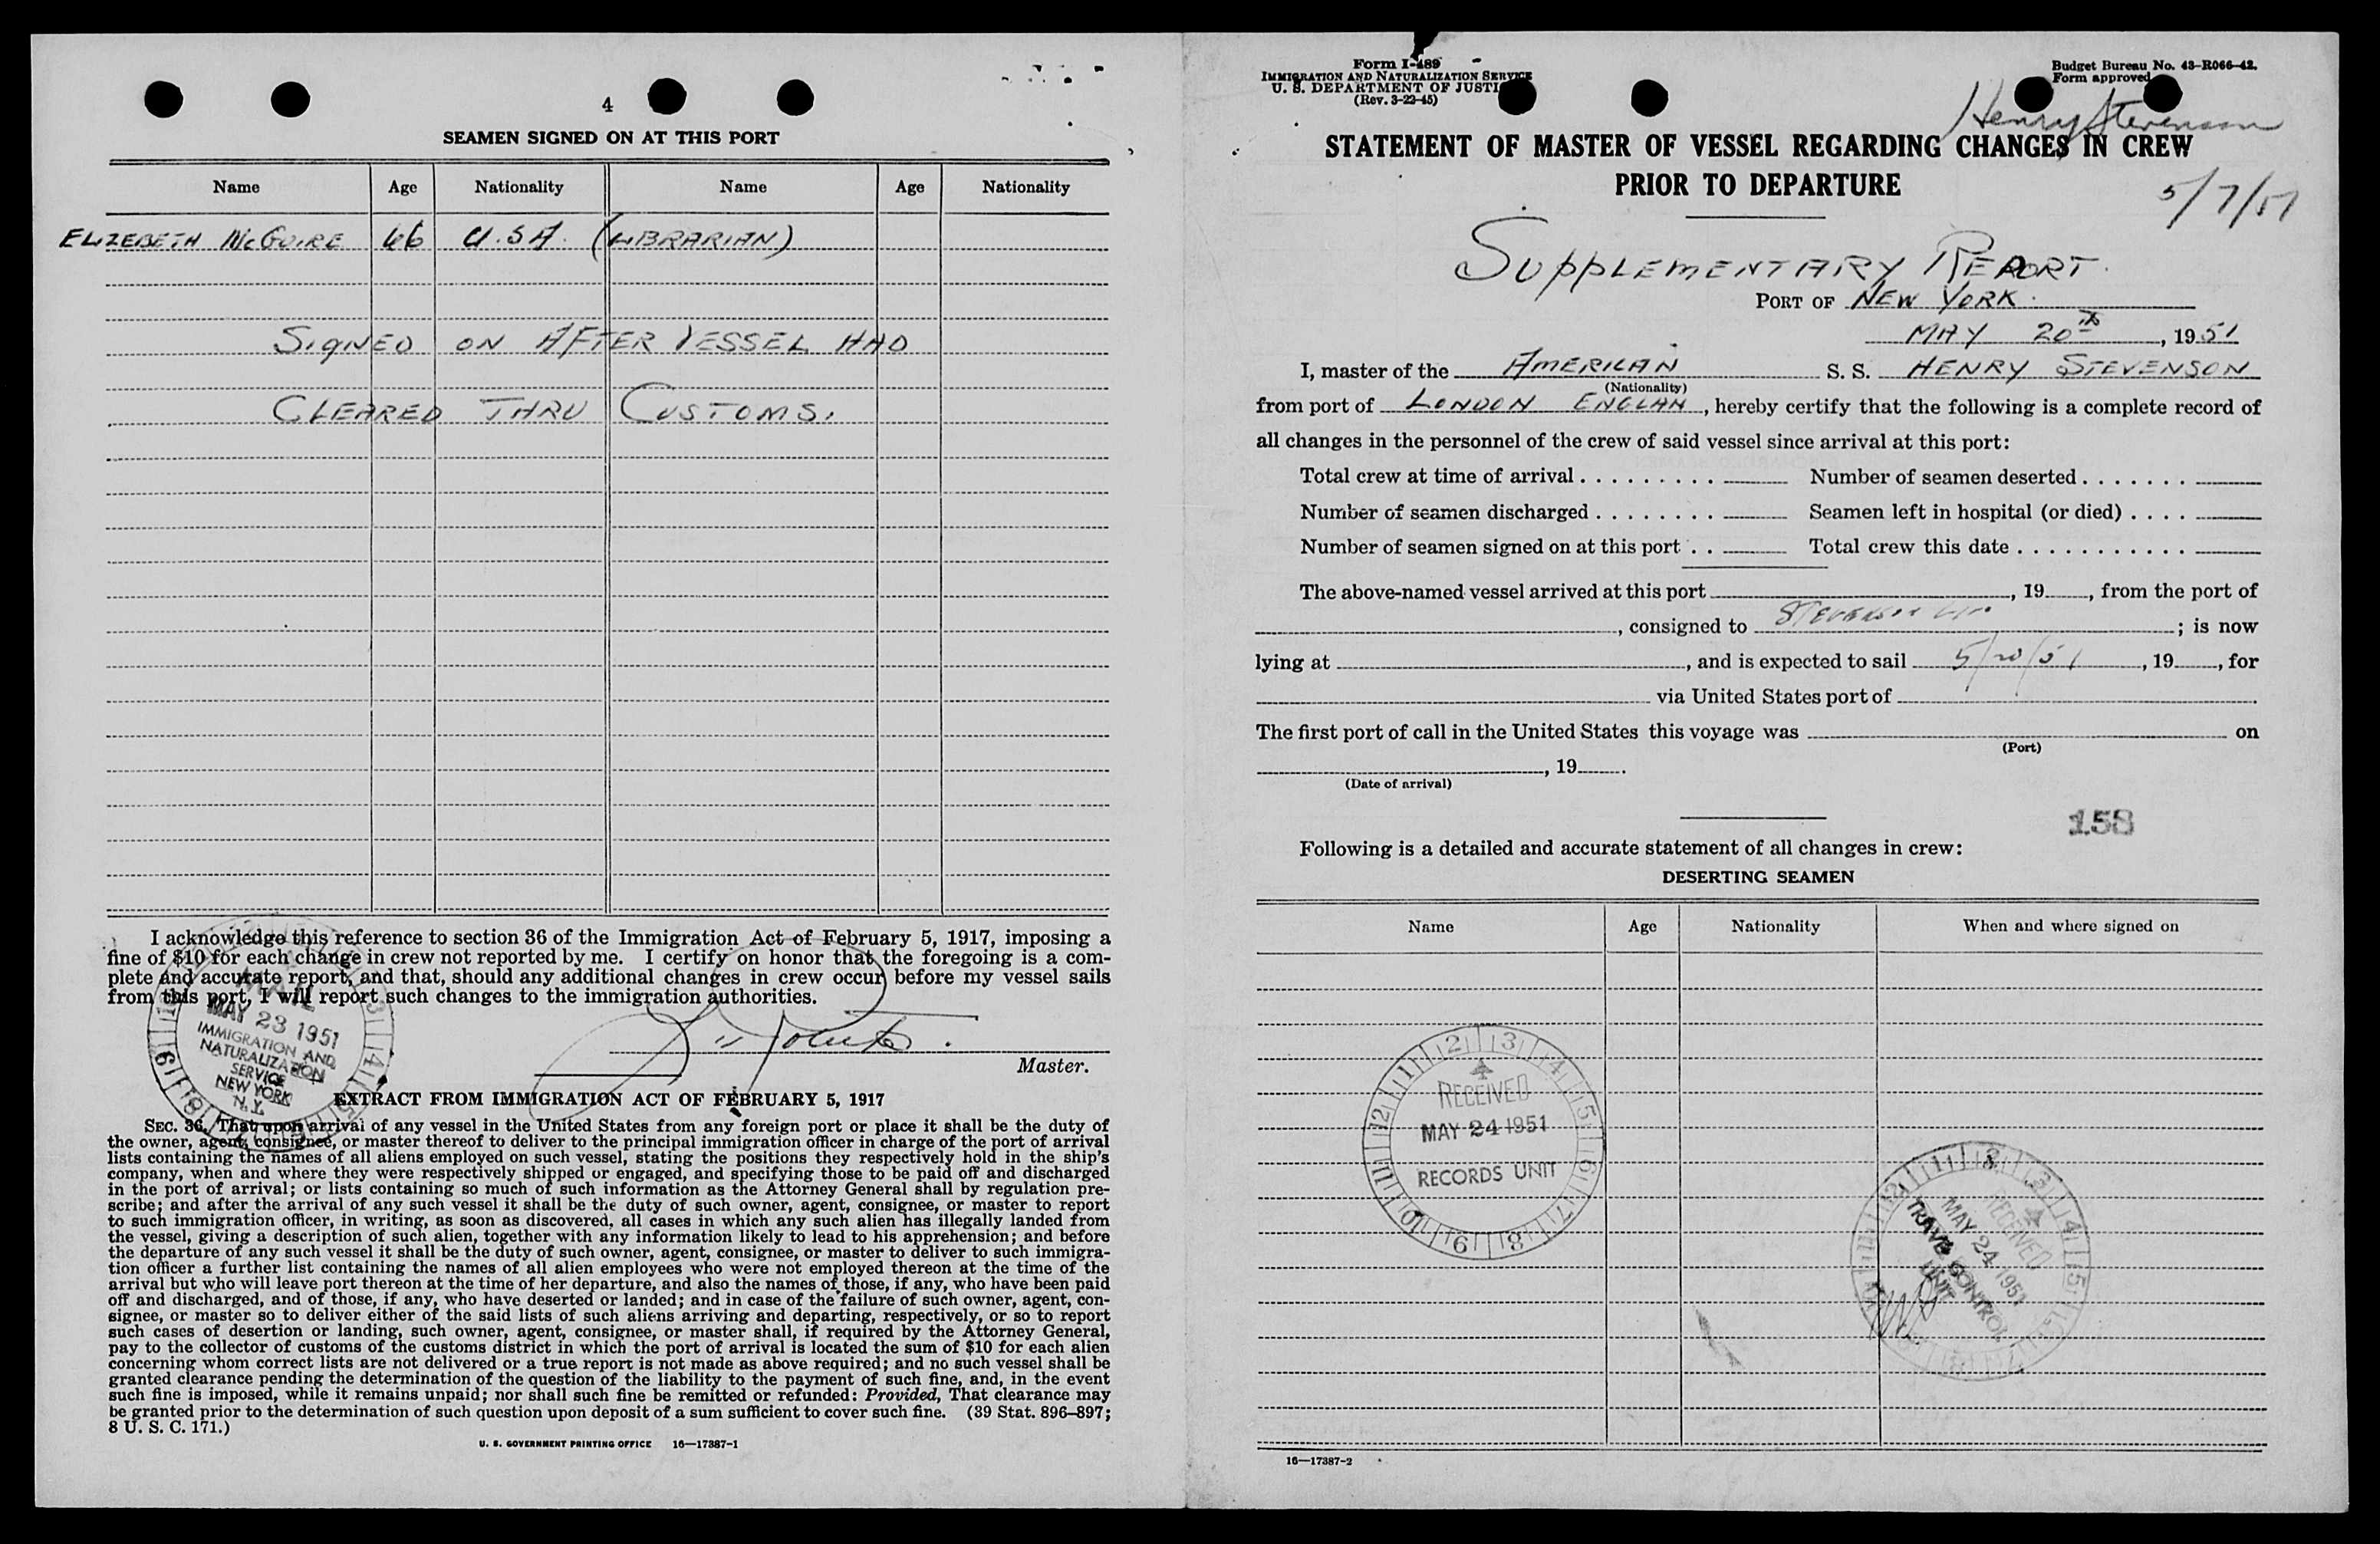 4
SEAMEN SIGNED ON AT THIS PORT
Name Age Nationality Name Age Nationality
ELIZEBETH McGUIRE 46 U.S.A. (LIBRARIAN)
SIGNED ON AFTER VESSEL HAD
CLEARED THRU CUSTOMS.
I acknowledge this reference to section 36 of the Immigration Act of February 5, 1917, imposing a
fine of $10 for each change in crew not reported by me. I certify on honor that the foregoing is a com-
plete and accurate report, and that, should any additional changes in crew occur before my vessel sails
from this port, I will report such changes to the immigration authorities.
Master.
MAIL
MAY 23 1951
IMMIGRATION AND
NATURALIZATION
SERVICE
NEW YORK
N.Y.
EXTRACT FROM IMMIGRATION ACT OF FEBRUARY 5, 1917
SEC. 36. That upon arrival of any vessel in the United States from any foreign port or place it shall be the duty of
the owner, agent, consignee, or master thereof to deliver to the principal immigration officer in charge of the port of arrival
lists containing the names of all aliens employed on such vessel, stating the positions they respectively hold in the ship's
company, when and where they were respectively shipped or engaged, and specifying those to be paid off and discharged
in the port of arrival; or lists containing so much of such information as the Attorney General shall by regulation pre-
scribe; and after the arrival of any such vessel it shall be the duty of such owner, agent, consignee, or master to report
to such immigration officer, in writing, as soon as discovered, all cases in which any such alien has illegally landed from
the vessel, giving a description of such alien, together with any information likely to lead to his apprehension; and before
the departure of any such vessel it shall be the duty of such owner, agent, consignee, or master to deliver to such immigra-
tion officer a further list containing the names of all alien employees who were not employed thereon at the time of the
arrival but who will leave port thereon at the time of her departure, and also the names of those, if any, who have been paid
off and discharged, and of those, if any, who have deserted or landed; and in case of the failure of such owner, agent, con-
signee, or master so to deliver either of the said lists of such aliens arriving and departing, respectively, or so to report
such cases of desertion or landing, such owner, agent, consignee, or master shall, if required by the Attorney General,
pay to the collector of customs of the customs district in which the port of arrival is located the sum of $10 for each alien
concerning whom correct lists are not delivered or a true report is not made as above required; and no such vessel shall be
granted clearance pending the determination of the question of the liability to the payment of such fine, and, in the event
such fine is imposed, while it remains unpaid; nor shall such fine be remitted or refunded: Provided, That clearance may
be granted prior to the determination of such question upon deposit of a sum sufficient to cover such fine. (39 Stat. 896–897;
8 U. S. C. 171.)
U. S. GOVERNMENT PRINTING OFFICE 16—17387-1
Form I-489
IMMIGRATION AND NATURALIZATION SERVICE
U. S. DEPARTMENT OF JUSTI
(Rev. 3-22-45)
Budget Bureau No. 43-R066-42.
Form approved
Henry Stevenson
STATEMENT OF MASTER OF VESSEL REGARDING CHANGES IN CREW
PRIOR TO DEPARTURE
5/7/51
SUPPLEMENTARY REPORT.
PORT OF NEW YORK.
MAY 20th, 1951
I, master of the AMERICAN S. S. HENRY STEVENSON
(Nationality)
from port of LONDON ENGLAN, hereby certify that the following is a complete record of
all changes in the personnel of the crew of said vessel since arrival at this port:
Total crew at time of arrival . . . . . . . . . Number of seamen deserted . . . . . . .
Number of seamen discharged . . . . . . . . Seamen left in hospital (or died) . . . .
Number of seamen signed on at this port . . Total crew this date . . . . . . . . . . .
The above-named vessel arrived at this port , 19 , from the port of
, consigned to ; is now
lying at , and is expected to sail 5/20/51 , 19 , for
via United States port of .
The first port of call in the United States this voyage was on
(Port)
, 19 .
(Date of arrival)
158
Following is a detailed and accurate statement of all changes in crew:
DESERTING SEAMEN
Name Age Nationality When and where signed on
RECEIVED
MAY 24 1951
RECORDS UNIT
RECEIVED
MAY 24 1951
TRAVEL CONTROL
UNIT
16—17387-2